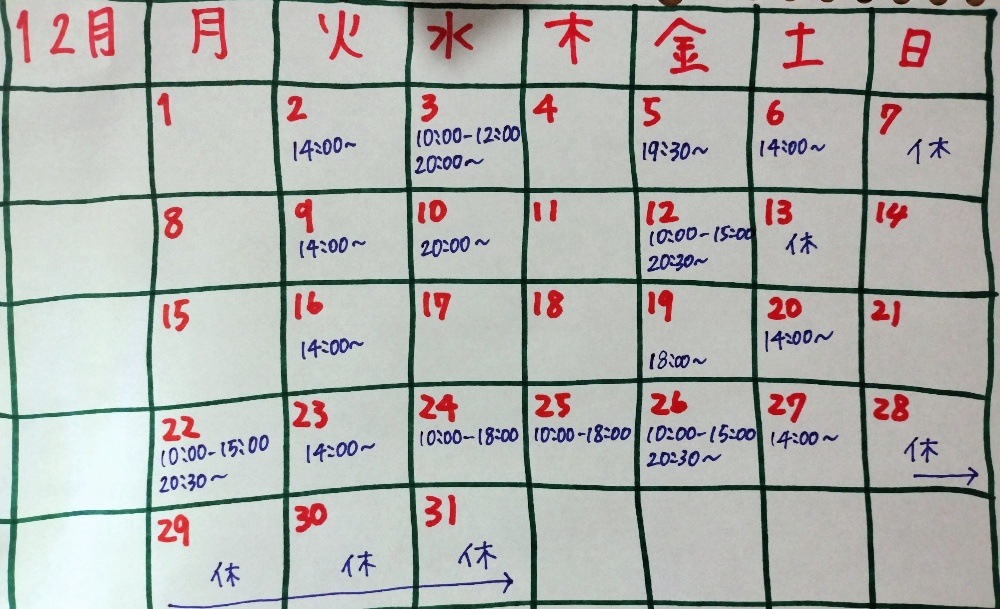 12月 月 火 水 木 金 土 日
1 2 3 4 5 6 7
14:00~ 10:00-12:00 19:30~ 14:00~ 休
20:00~
8 9 10 11 12 13 14
14:00~ 20:00~ 10:00-15:00 休
20:30~
15 16 17 18 19 20 21
14:00~ 18:00~ 14:00~
22 23 24 25 26 27 28
10:00-15:00 14:00~ 10:00-18:00 10:00-18:00 10:00-15:00 14:00~ 休
20:30~ 20:30~
29 30 31
休 休 休